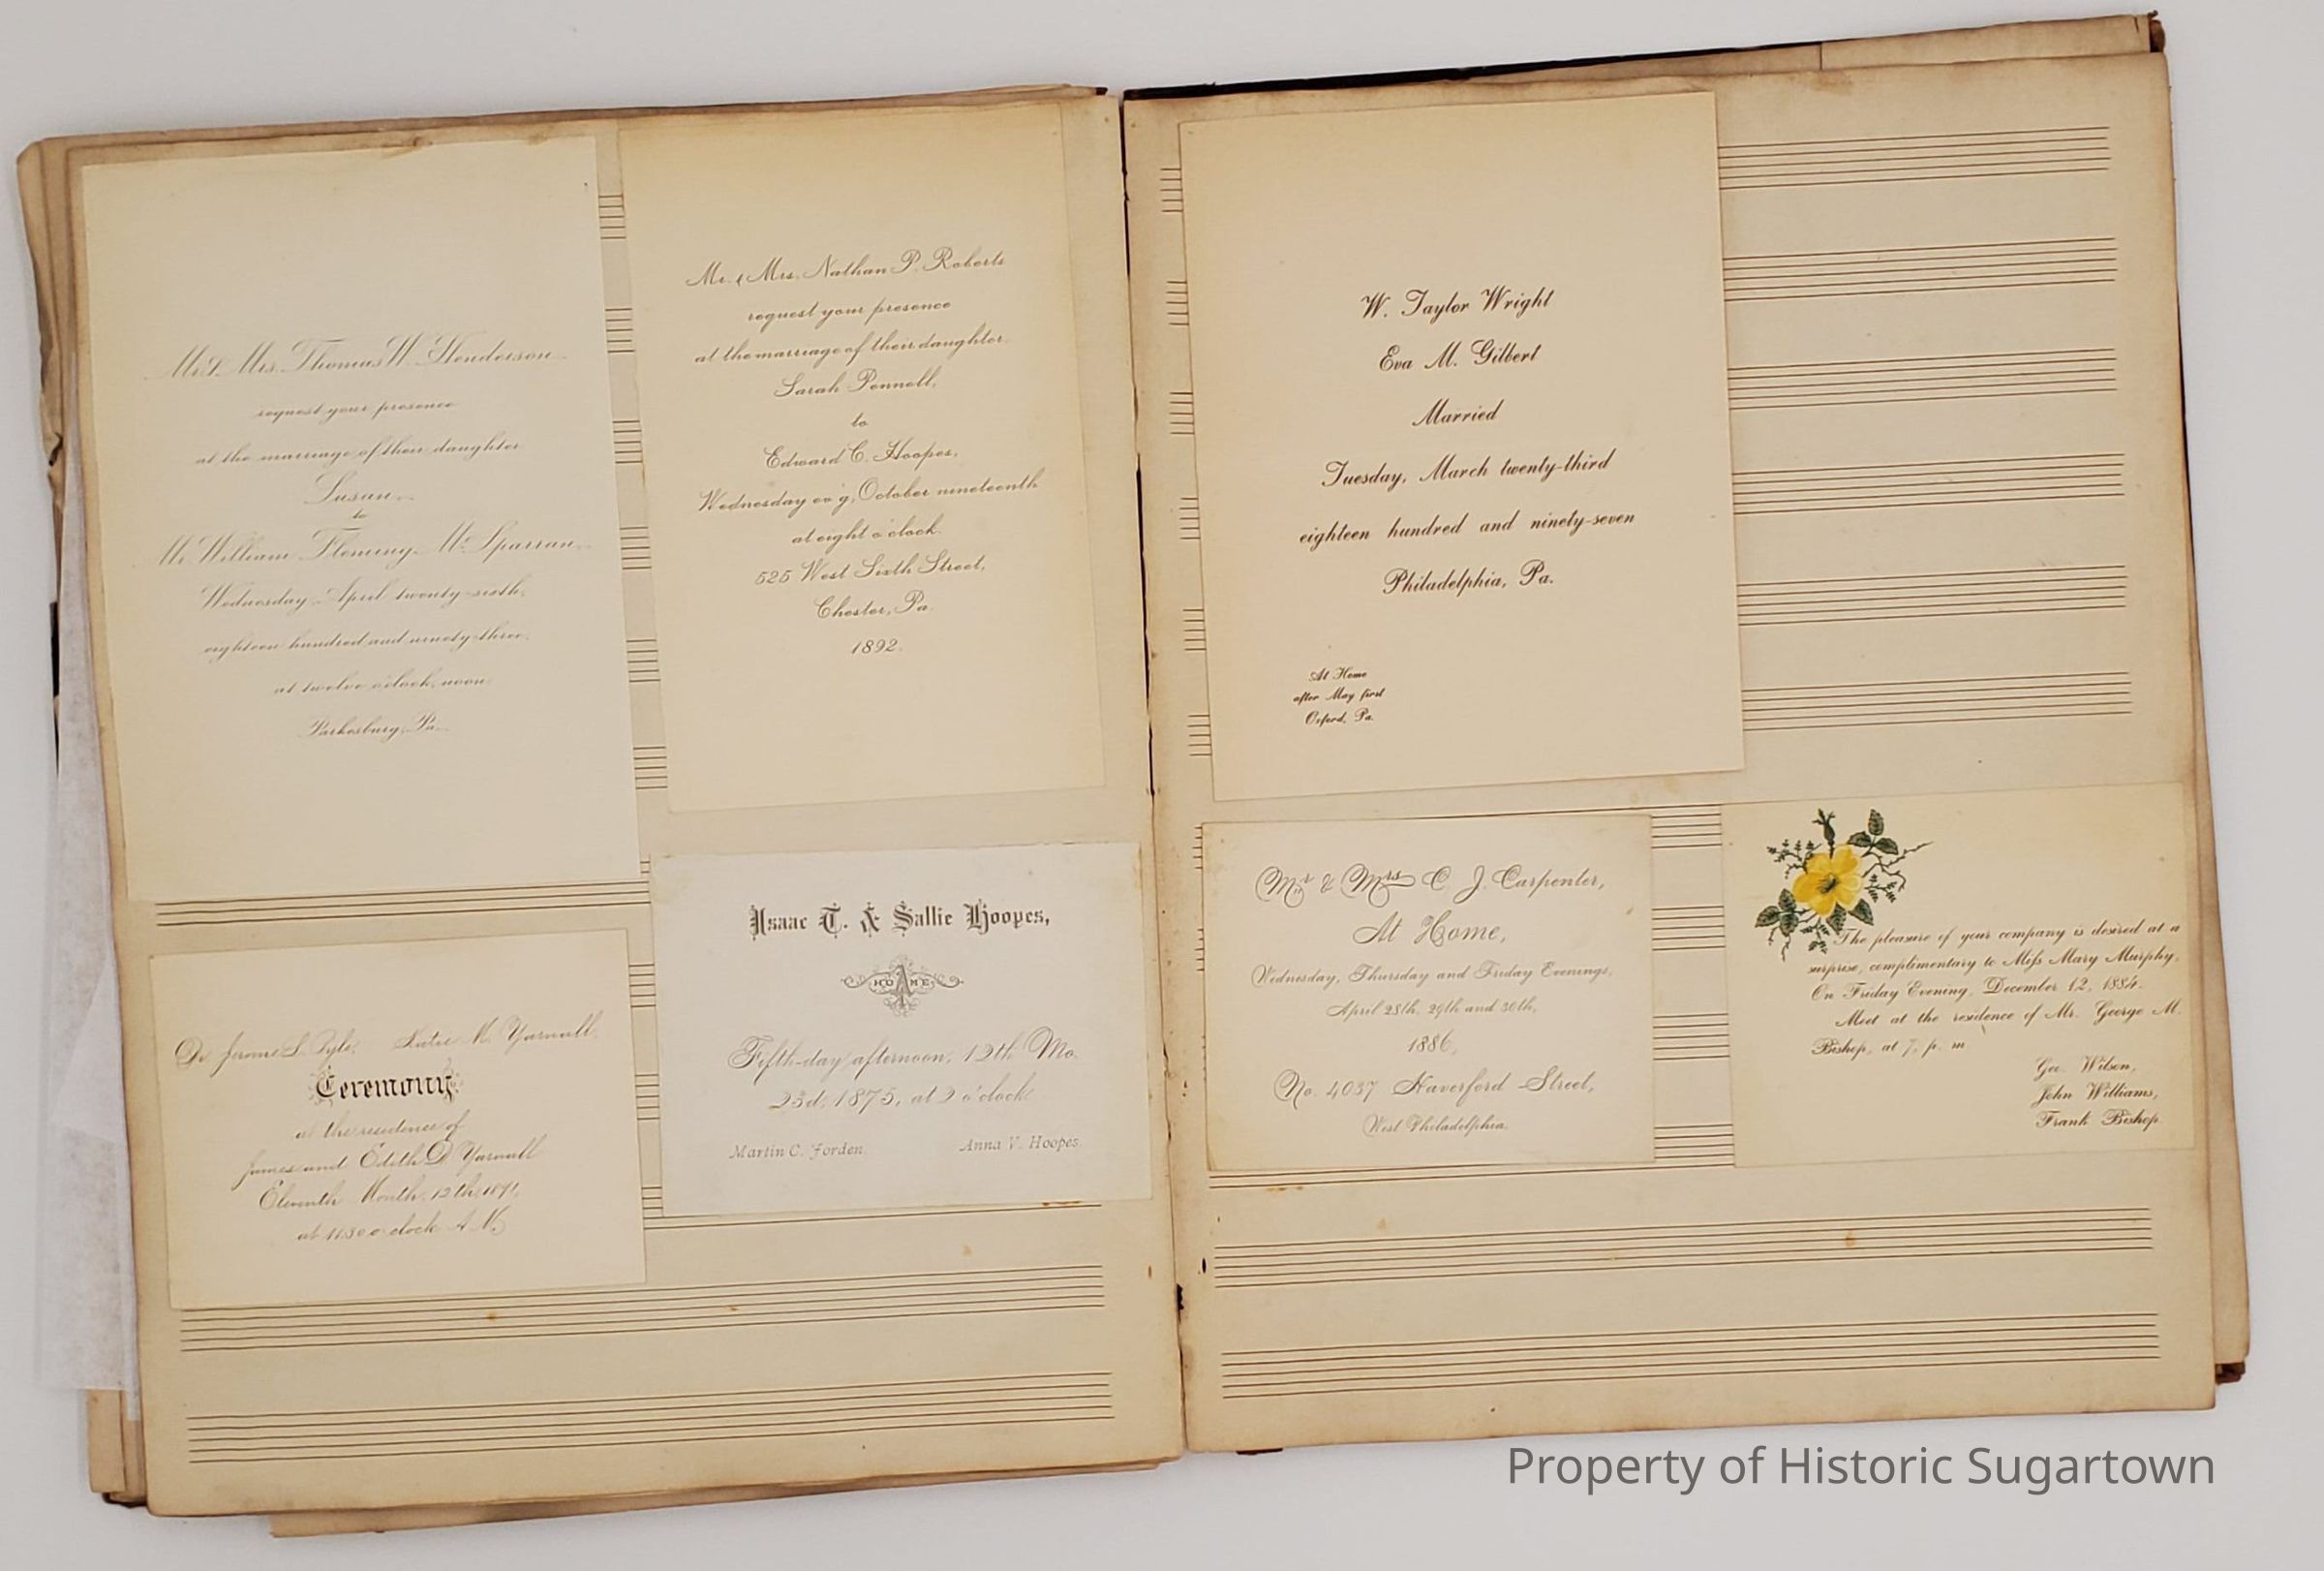 Mr. & Mrs. Thomas W. Henderson
request your presence
at the marriage of their daughter
Susan
to
Mr. William Fleming McSparran,
Wednesday, April twenty-sixth,
eighteen hundred and ninety-three,
at twelve o'clock, noon
Parkesburg, Pa.
Mr. & Mrs. Nathan P. Roberts
request your presence
at the marriage of their daughter
Sarah Pennell,
to
Edward C. Hoopes,
Wednesday ev'g, October nineteenth
at eight o'clock.
525 West Sixth Street,
Chester, Pa.
1892.
Dr Jerome L. Pyle, Katie M. Yarnall,
Ceremony
at the residence of
James and Edith D Yarnall
Eleventh Month, 12th
at 11.30 o'clock A.M.
Isaac T. & Sallie Hoopes,
AT HOME
Fifth-day afternoon, 12th Mo.
23d, 1875, at 2 o'clock
Martin C. Forden. Anna V. Hoopes.
W. Taylor Wright
Eva M. Gilbert
Married
Tuesday, March twenty-third
eighteen hundred and ninety-seven
Philadelphia, Pa.
At Home
after May first
Oxford, Pa.
Mr & Mrs C. J. Carpenter,
At Home,
Wednesday, Thursday and Friday Evenings,
April 28th, 29th and 30th,
1886,
No. 4037 Haverford Street,
West Philadelphia.
The pleasure of your company is desired at a
surprise, complimentary to Miss Mary Murphy.
On Friday Evening, December 12, 1884.
Meet at the residence of Mr. George M.
Bishop, at 7, p. m.
Geo. Wilson,
John Williams,
Frank Bishop.
Property of Historic Sugartown